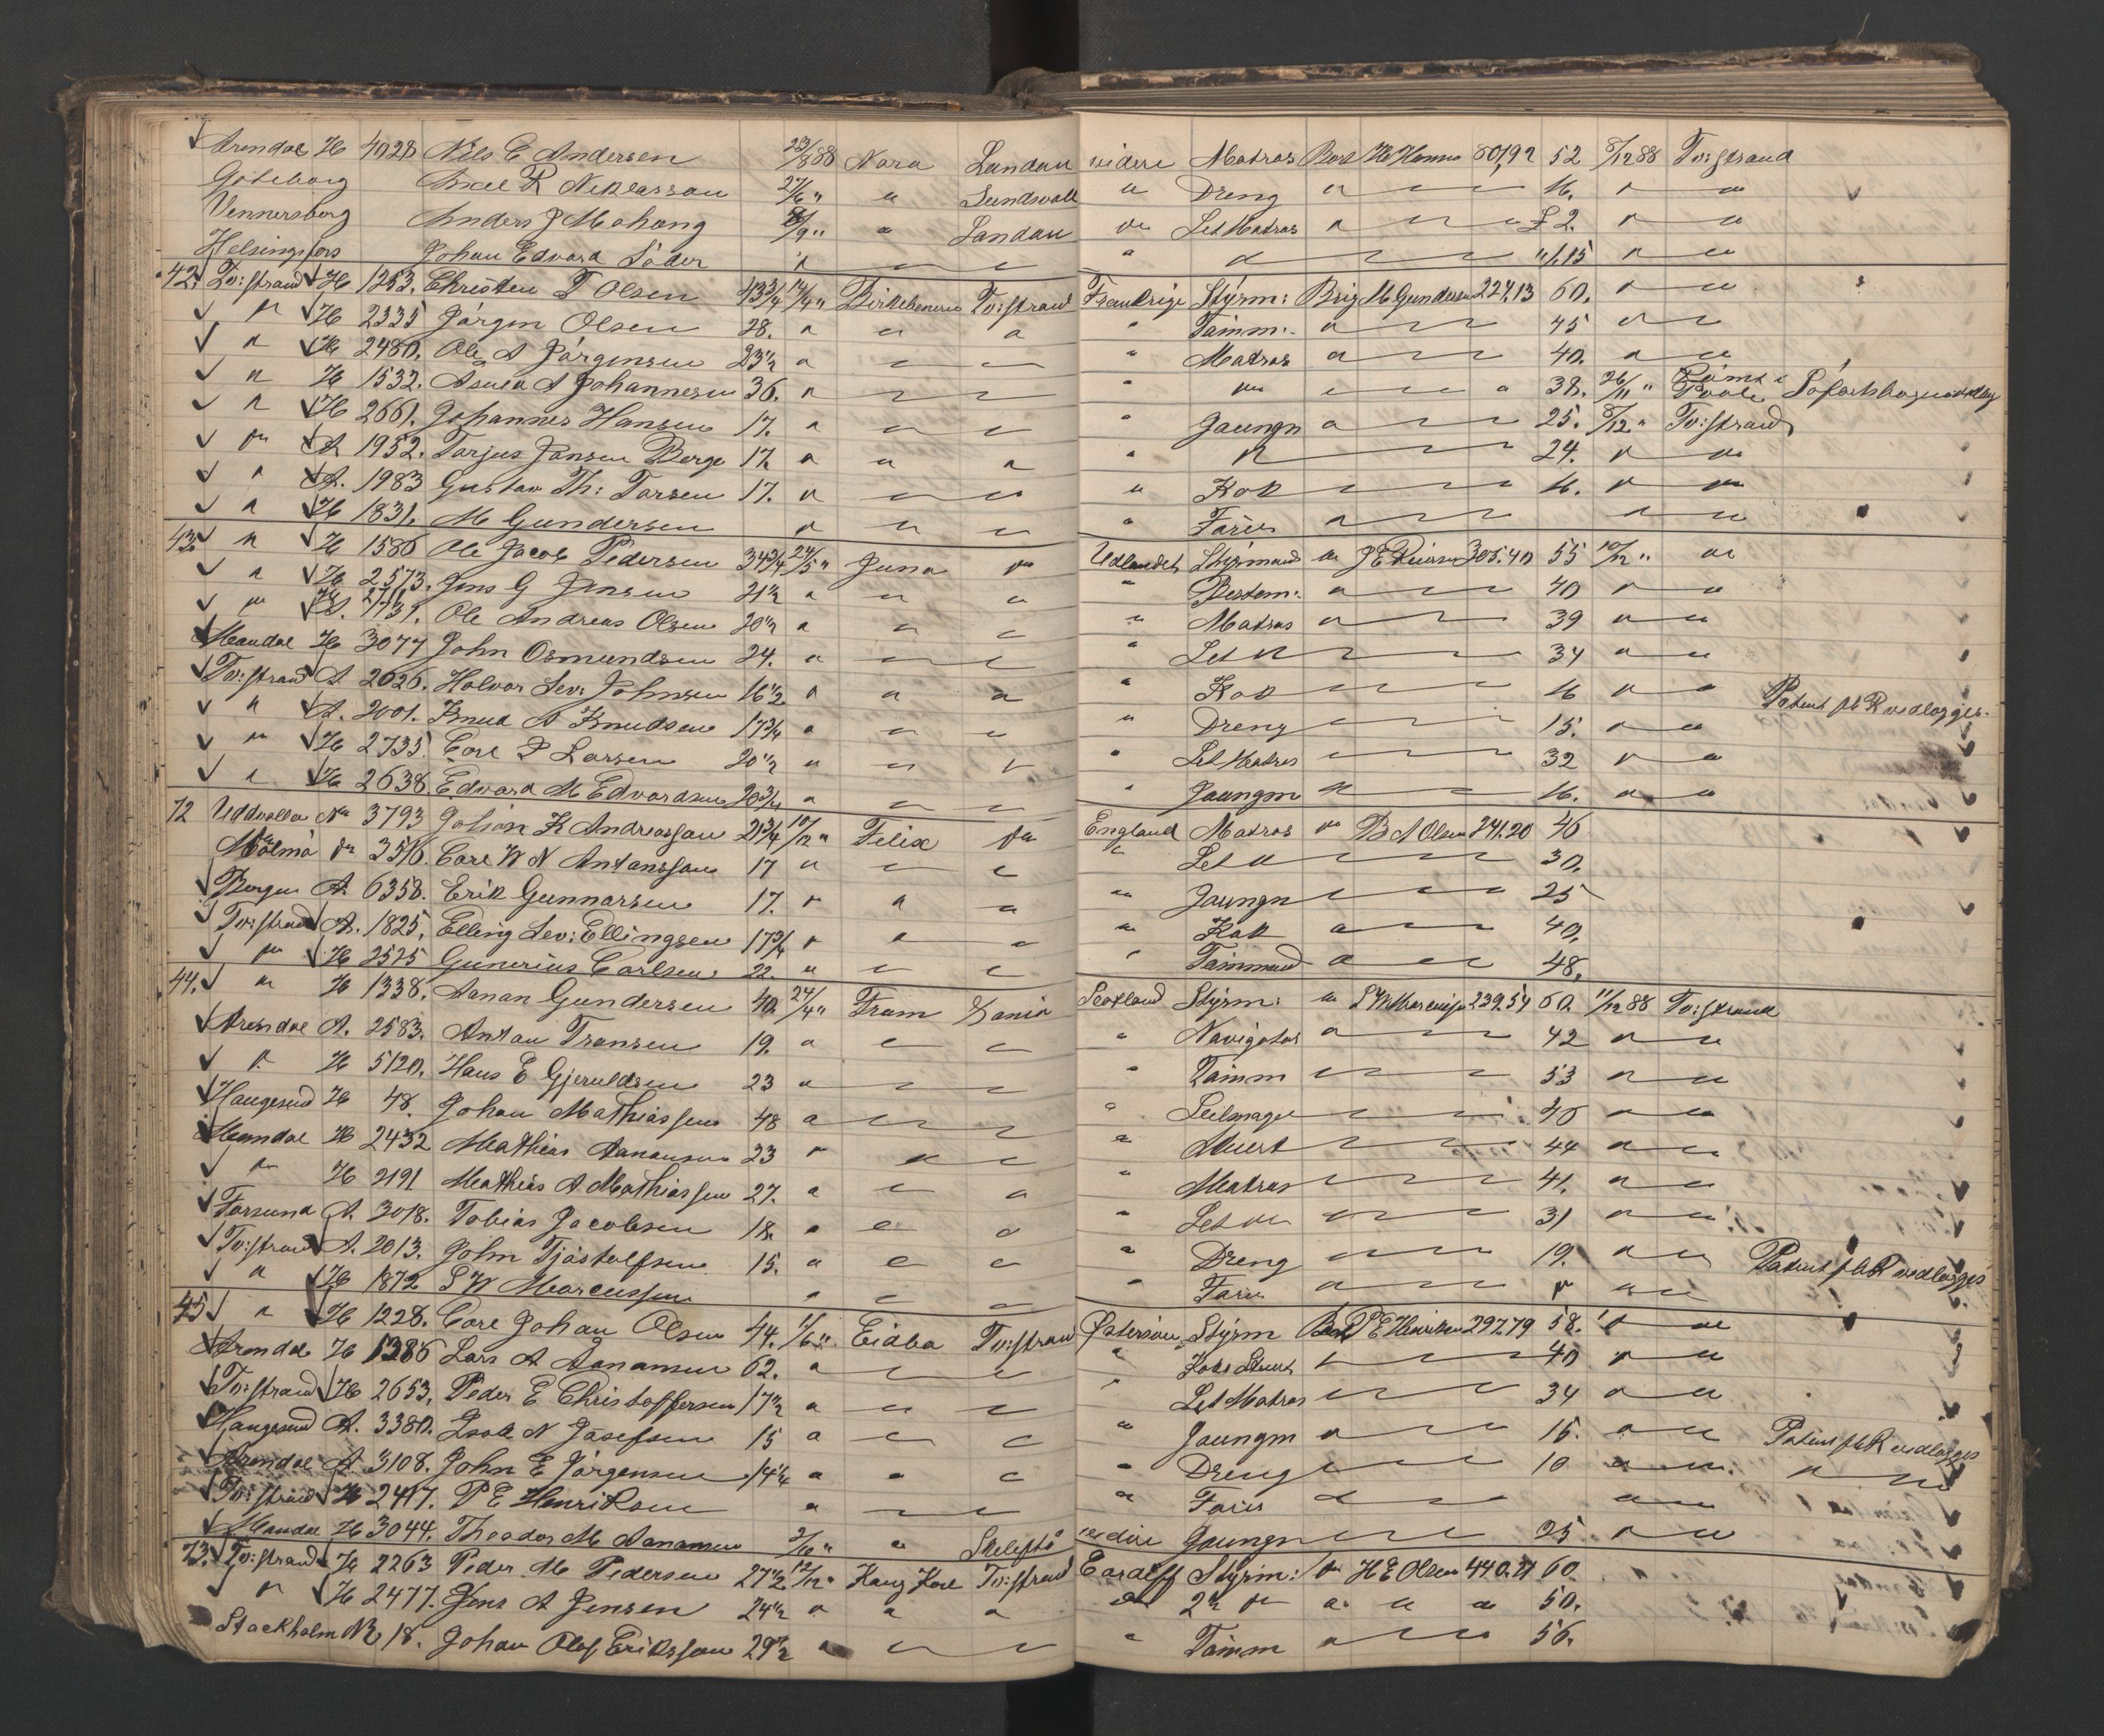 Arendal H 4928 Nils E Andersen 23/8 88 Nora Landau videre Matros Bark H Hansen 801,92 52 8/12 88 Tv:strand
Göteborg R Niklasson 27/6 " " Sundsvall " Dreng " 16. " "
Vennersborg Anders J /9 " " Landau " Let Matros " £2. " "
Helsingfors Johan Edvard Söder " " " " " "1.15 " "
42. Tv:strand H 1253. Christen T Olsen 43 3/4 14/4 " Birkebeneren Tv:strand Frankrige Styrm: Brig M Gundersen 227,13 60. " "
" H 2335 Jörgen Olsen 28. " " " " Tömm: " 45 " "
" H 2480. Ole A Jörgensen 23 1/2 " " " " Matros " 40. " "
" H 1532. Asuld A Johannesen 36. " " " " " " 38. 26/11 " Rømt i Poole
" H 2661. Johannes Hansen 17. " " " " Jaungm " 25. 8/12 " Tv:strand
" A 1952. Tarjus Jansen Berge 17. " " " " " 24. " "
" A. 1983 Gustav Th: Tarsen 17. " " " " Kok 16. " "
" H 1831. M Gundersen " " " " Fører " " "
43. " H 1586 Ole Jacob Pedersen 34 3/4 24/5 " Juno " Udlandet Styrmand " 305.40 55 10/12 " "
" H 2573. Jens G Jensen 21 1/2 " " " " Bestem: " 40 " "
" Ole Andreas Olsen 20 1/2 " " " " Matros " 39 " "
Mandal H 3077 John Osmundsen 24. " " " " Let " 34 " "
Tv:strand A 2026. Halvor Lev: Johnsen 16 1/2 " " " " Kok 16 " "
" A. 2001. Knud A Knudsen 17 3/4 " " " " Dreng 15. " " Patent vedlægges.
" H 2735. Carl P Larsen 20 1/2 " " " " Let Matros 32 " "
" H 2638. Edvard M Edvardsen 20 3/4 " " " " Jaungm " 16. " "
72 Uddvalla No 3793 Johan K Andreasson 21 3/4 10/12 " Felix " England Matros " B A Olsen 241.20 46
Malmö " Carl W N Antonsson 17 " " " " Let " 30.
Bergen A. 6358. Erik Gunnarsen 17. " " " " Jaungm 25
Tv:strand A. 1825. Elling Lev: Ellingsen 17 3/4 " " " " Kok " 40.
" H 2525 Gunerius Carlsen 22 " " " " Tömmand " 48.
44. " H 1338. Aanan Gundersen 40. 24/4 " Fram Scotland Styrm: " 239.54 60. 11/12 88 Tv:strand
Arendal A. 2583. Anton Transen 19. " " " " Navigatør " 42 " "
" H 5120. Hans E Gjeruldsen 23 " " " " Tømm 53 " "
Haugesund H 48. Johan Mathiassen 48 " " " " Seilmager 46 " "
Mandal H 2432 Mathias Aanansen 23 " " " " Stuert 44 " "
" H 2191 Mathias A Mathiassen 27. " " " " Matros 41. " "
Farsund A. 3018. Tobias Jacobsen 18. " " " " Let " 31 " "
Tv:strand A. 2013. John Tjöstolfsen 15. " " " " Dreng 19. " " Patent vedlægges
" H 1872 S W Marcussen " " " " Fører " " "
45. " H 1228. Carl Johan Olsen 44. 11/6 " Eidba Tv:strand Østersöen Styrm Bark P E Henriksen 297.79 58. " "
Arendal H 1386 Lars A Aanansen 62. " " " " Kok Stuert 40 " "
Tv:strand H 2653. Peder E Christoffersen 17 1/2 " " " " Let Matros 34 " "
Haugesund A. 3380. Isak N Josefsen 15 " " " " Jaungm " 16. " " Patent vedlægges
Arendal A 3108. John E Jörgensen 14 1/4 " " " " Dreng 10 " " " "
Tv:strand H 2417. P E Henriksen " " " " Fører " "
Mandal H 3044. Theodor M Aanansen " " Skelefteå videre Jaungm 25 " "
73. Tv:strand H 2263 Peder M Pedersen 27 1/2 12/12 " Kong Karl Tv:strand Cardiff Styrm: " H E Olsen 440.21 60
" H 2477. Jens A Jensen 24 1/2 " " " " 2den " " " " 50.
Stockholm No 18. Johan Olof Eriksson 29 1/2 " " " " Tömm " 56.